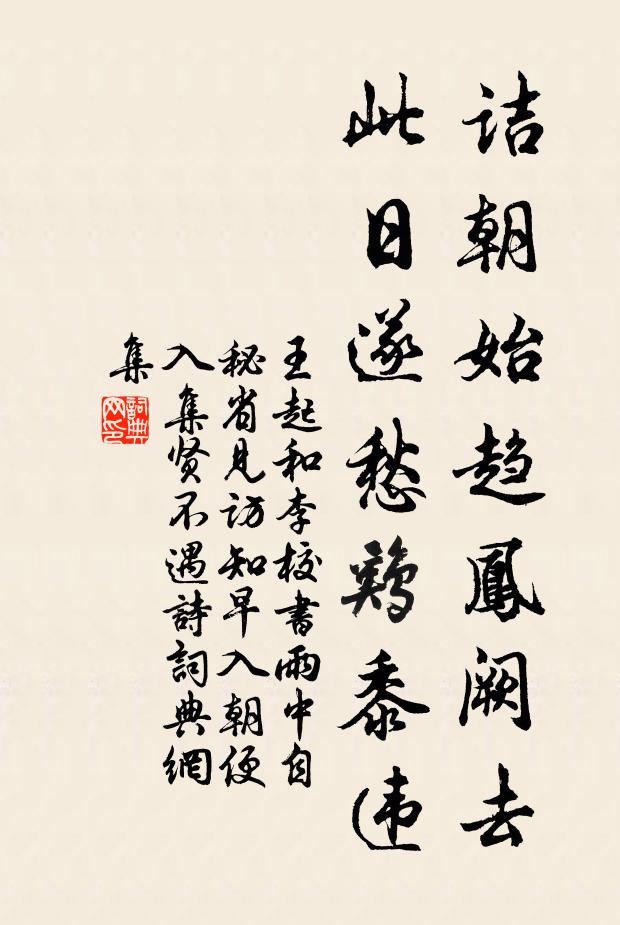 詰朝始趋鳳阙去
此日遂愁鷄黍违
王起和李校書雨中自
秘省見访知早入朝便
入集贤不遇詩詞典網
集
詞典
网印